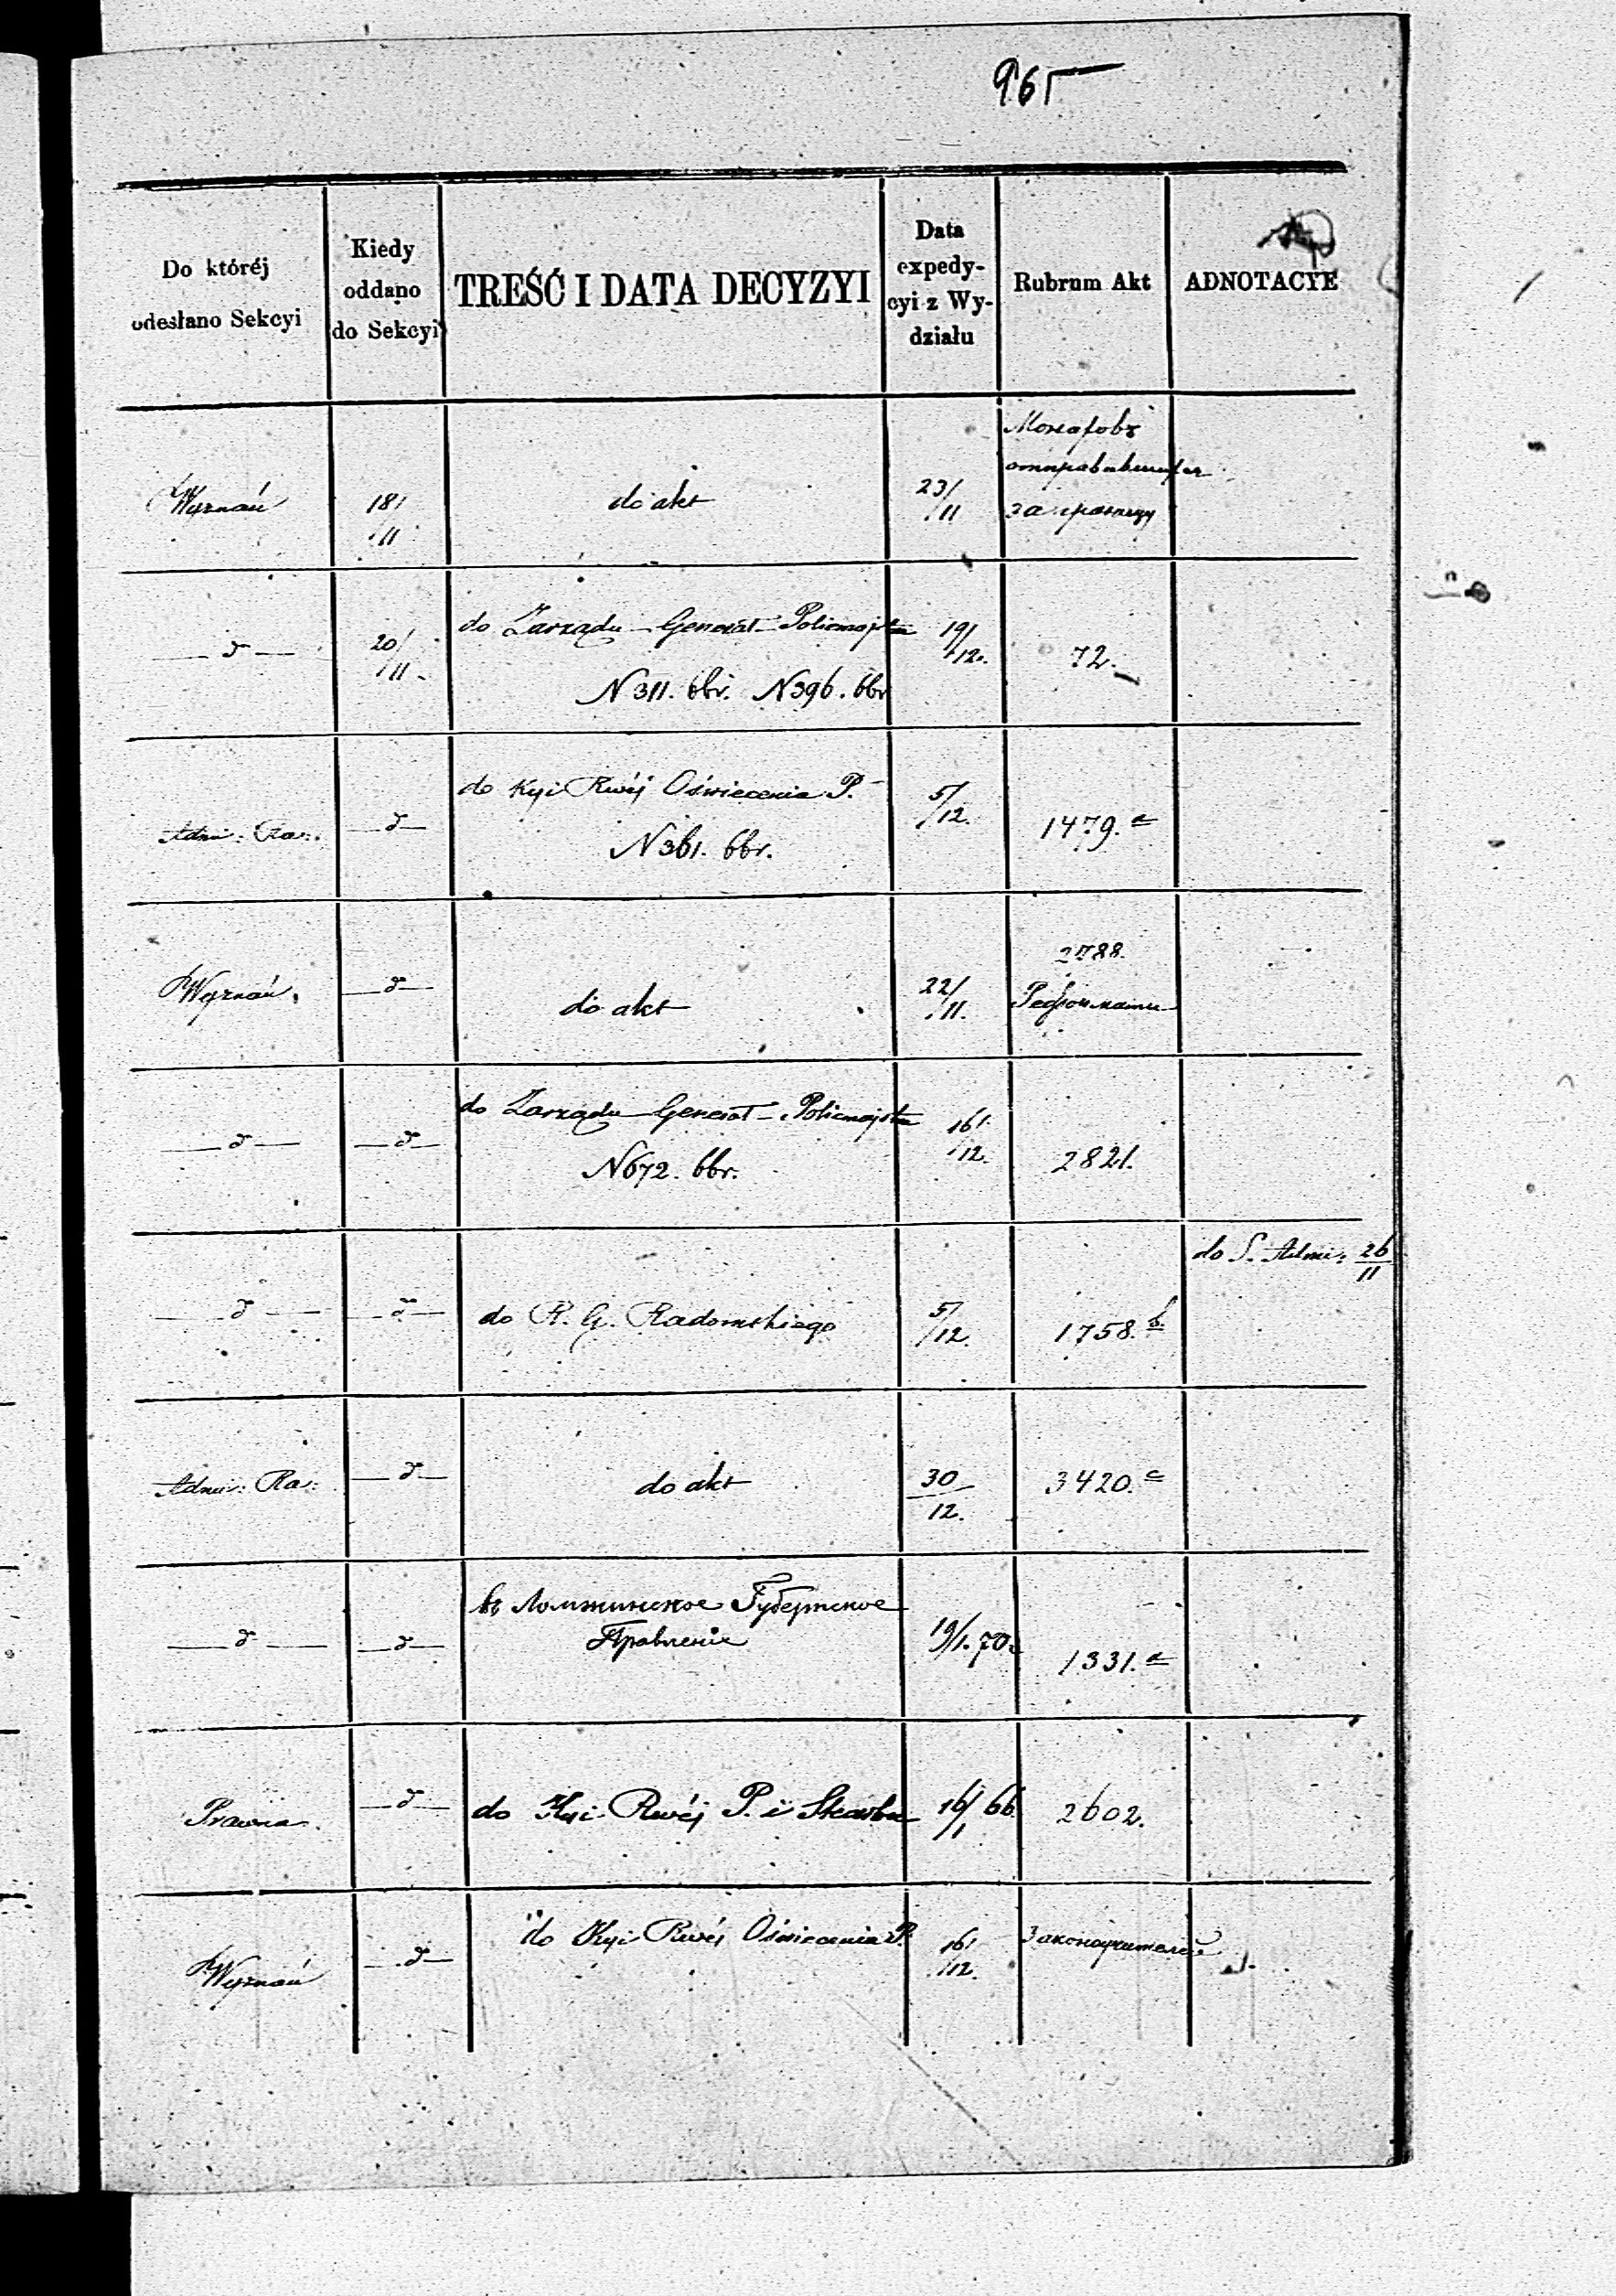 965
Do któréj odesłano Sekcyi
Kiedy oddano do Sekcyi
TREŚĆ I DATA DECYZYI
Data expedycyi z Wydziału
Rubrum Akt
ADNOTACYE
Wyznań 18/11 do akt 23/11
за границу
— d — 20/11 do Zarządu General-Policmajstra 19/12. 72.
N 311. bbr. N 396. bbr
Adm: Ra:. — d — do Kyi Rwéj Oświecenia P. 5/12. 1479. a
N 361. bbr.
2788.
Wyznań. — d — do akt 22/11.
— d — — d — do Zarządu General-Policmajstra 16/12. 2821.
N 672. bbr.
do S. Admi: 26/11
— d — — d — do R. G. Radomskiego 5/12. 1758. b.
Admi: Ra: — d — do akt 30/12. 3420. c
— d — — d — въ Ломжинское Губернское 19/1. 70. 1331. a
Правленіе
Prawna. — d — do Kyi Rwéj P. i Skarbu 16/1 66. 2602.
Wyznań — d — do Kyi Rwéj Oświecenia P. 16/12. Законоучителей